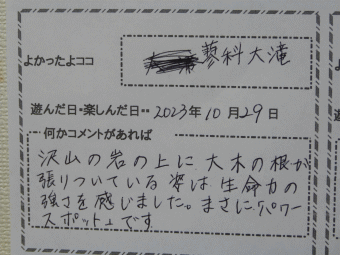 よかったよココ
蓼科大滝
遊んだ日・楽しんだ日・・ 2023年10月29日
何かコメントがあれば
沢山の岩の上に大木の根が
張りついている姿は生命力の
強さを感じました。まさに「パワー
スポット」です